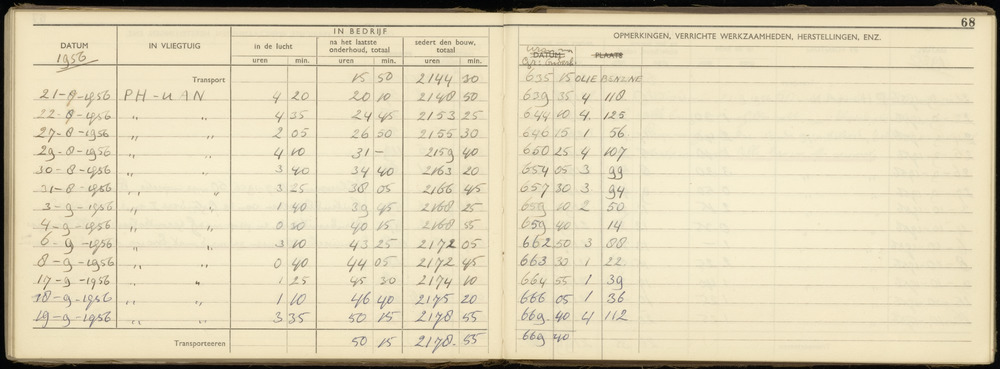 68
IN BEDRIJF
OPMERKINGEN, VERRICHTE WERKZAAMHEDEN, HERSTELLINGEN, ENZ.
DATUM IN VLIEGTUIG in de lucht na het laatste onderhoud, totaal sedert den bouw, totaal DATUM PLAATS
1956 uren min. uren min. uren min.
Transport 15 50 2144 30 635 15 OLIE BENZINE
21-8-1956 PH-UAN 4 20 20 10 2148 50 639 35 4 118
22-8-1956 " " 4 35 24 45 2153 25 644 10 4. 125
27-8-1956 " " 2 05 26 50 2155 30 646 15 1 56
29-8-1956 " " 4 10 31 - 2159 40 650 25 4 107
30-8-1956 " " 3 40 34 40 2163 20 654 05 3 99
31-8-1956 " " 3 25 38 05 2166 45 657 30 3 94
3-9-1956 " " 1 40 39 45 2168 25 659 10 2 50
4-9-1956 " " 0 30 40 15 2168 55 659 40 14
6-9-1956 " " 3 10 43 25 2172 05 662 50 3 88
8-9-1956 " " 0 40 44 05 2172 45 663 30 1 22
17-9-1956 " " 1 25 45 30 2174 10 664 55 1 39
18-9-1956 " " 1 10 46 40 2175 20 666 05 1 36
19-9-1956 " " 3 35 50 15 2178 55 669. 40 4 112
Transporteeren 50 15 2178. 55 669 40